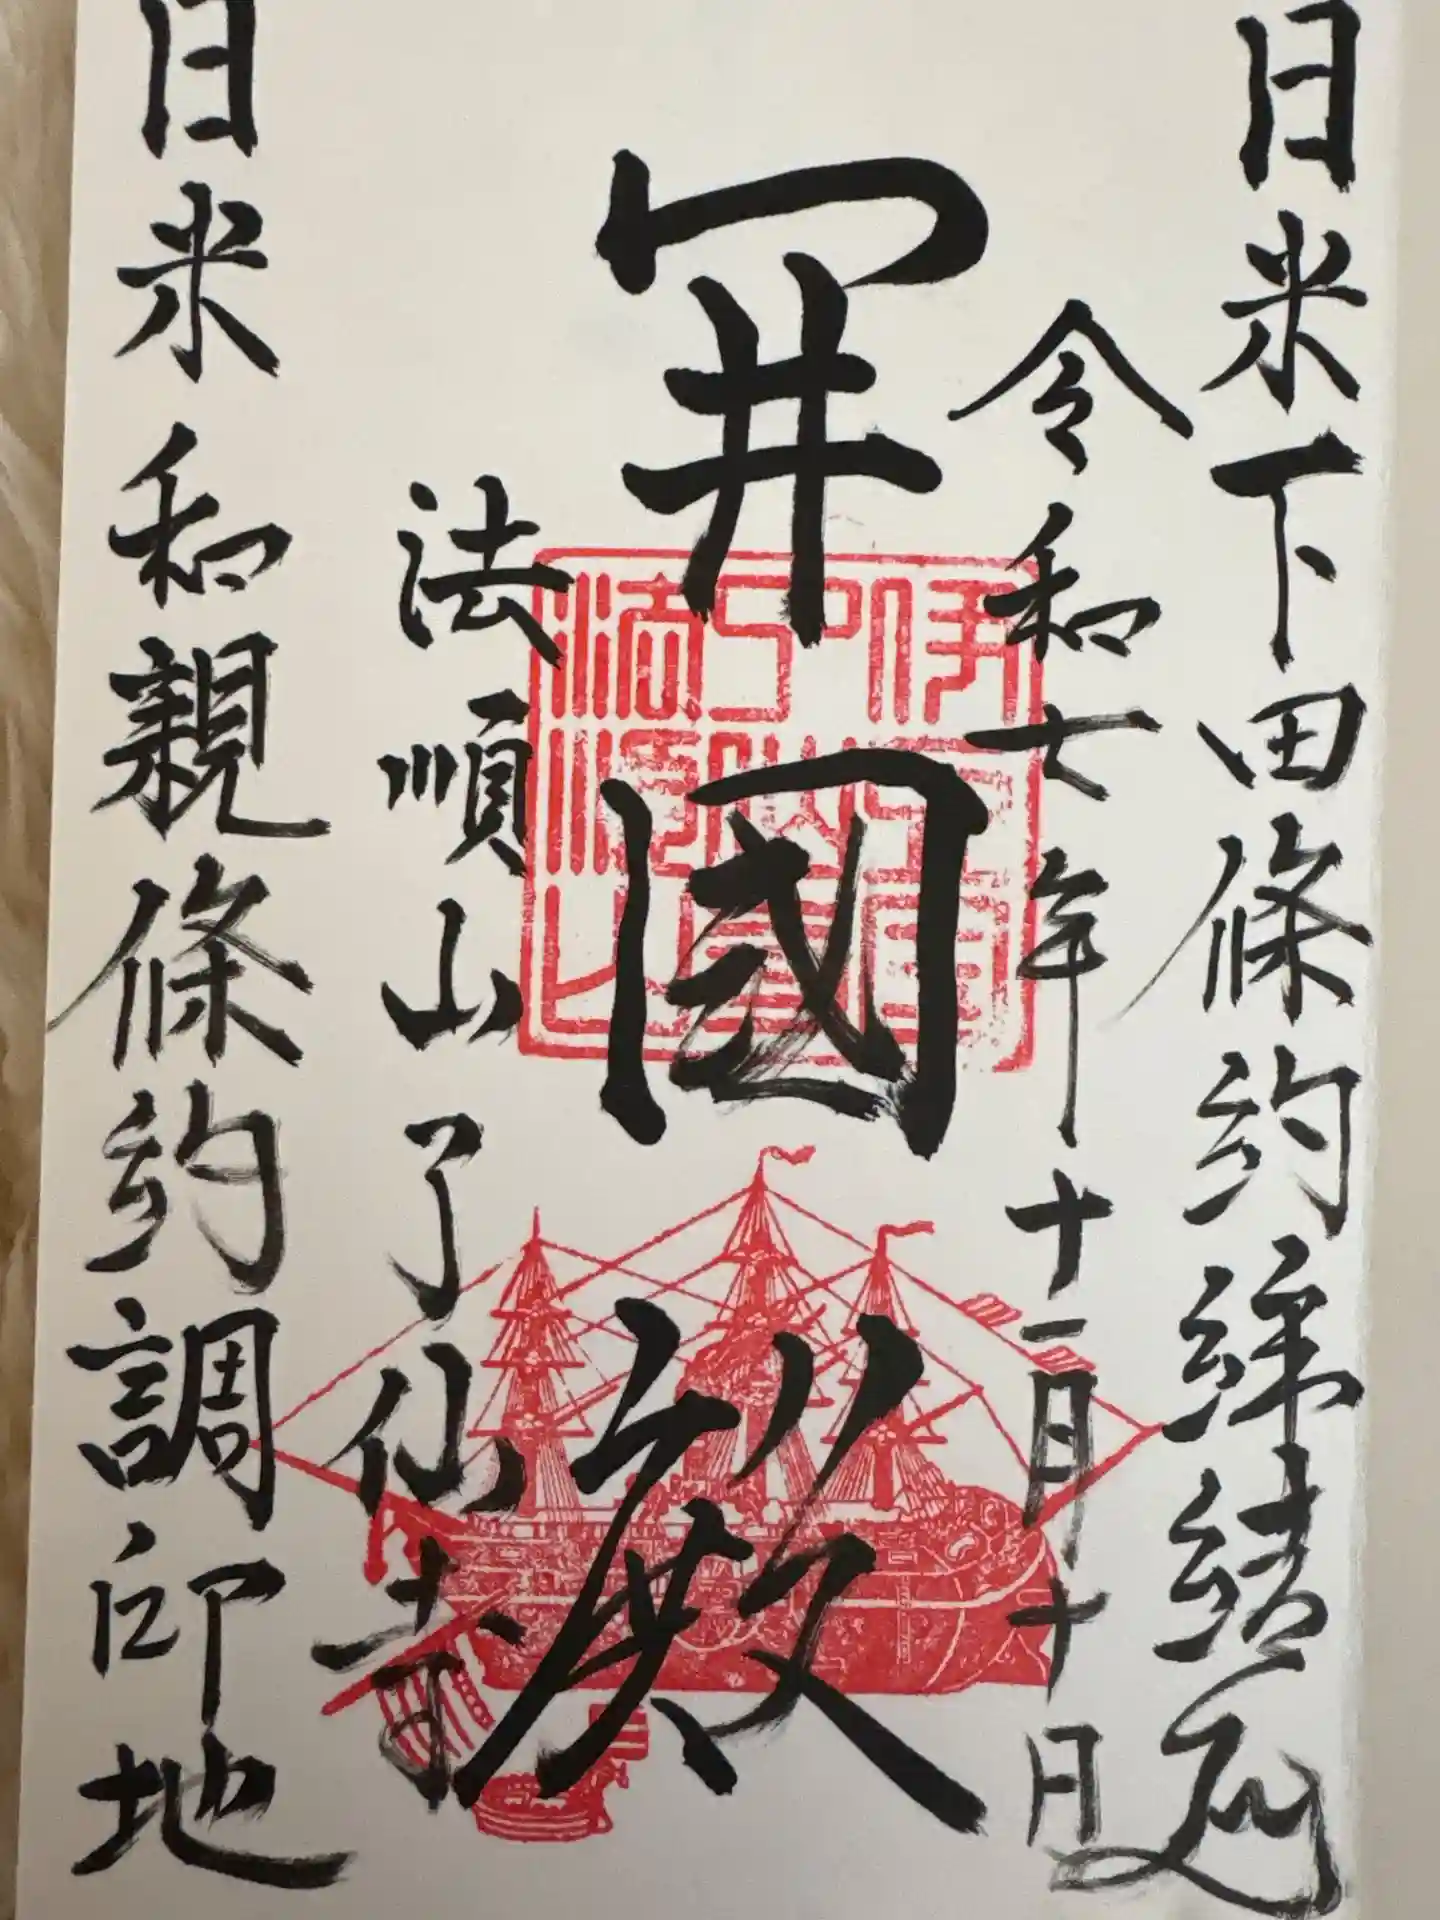 日米下田條約締結処
令和七年十一月十日
開國殿
法順山了仙寺
日米和親條約調印地